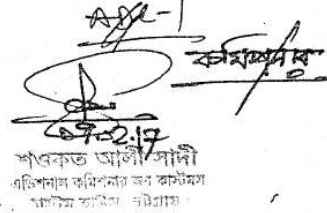 ADC-1
কমিশনার
07.02.17
শওকত আলী সাদী
এডিশনাল কমিশনার অব কাস্টমস
কাস্টম হাউস, চট্টগ্রাম